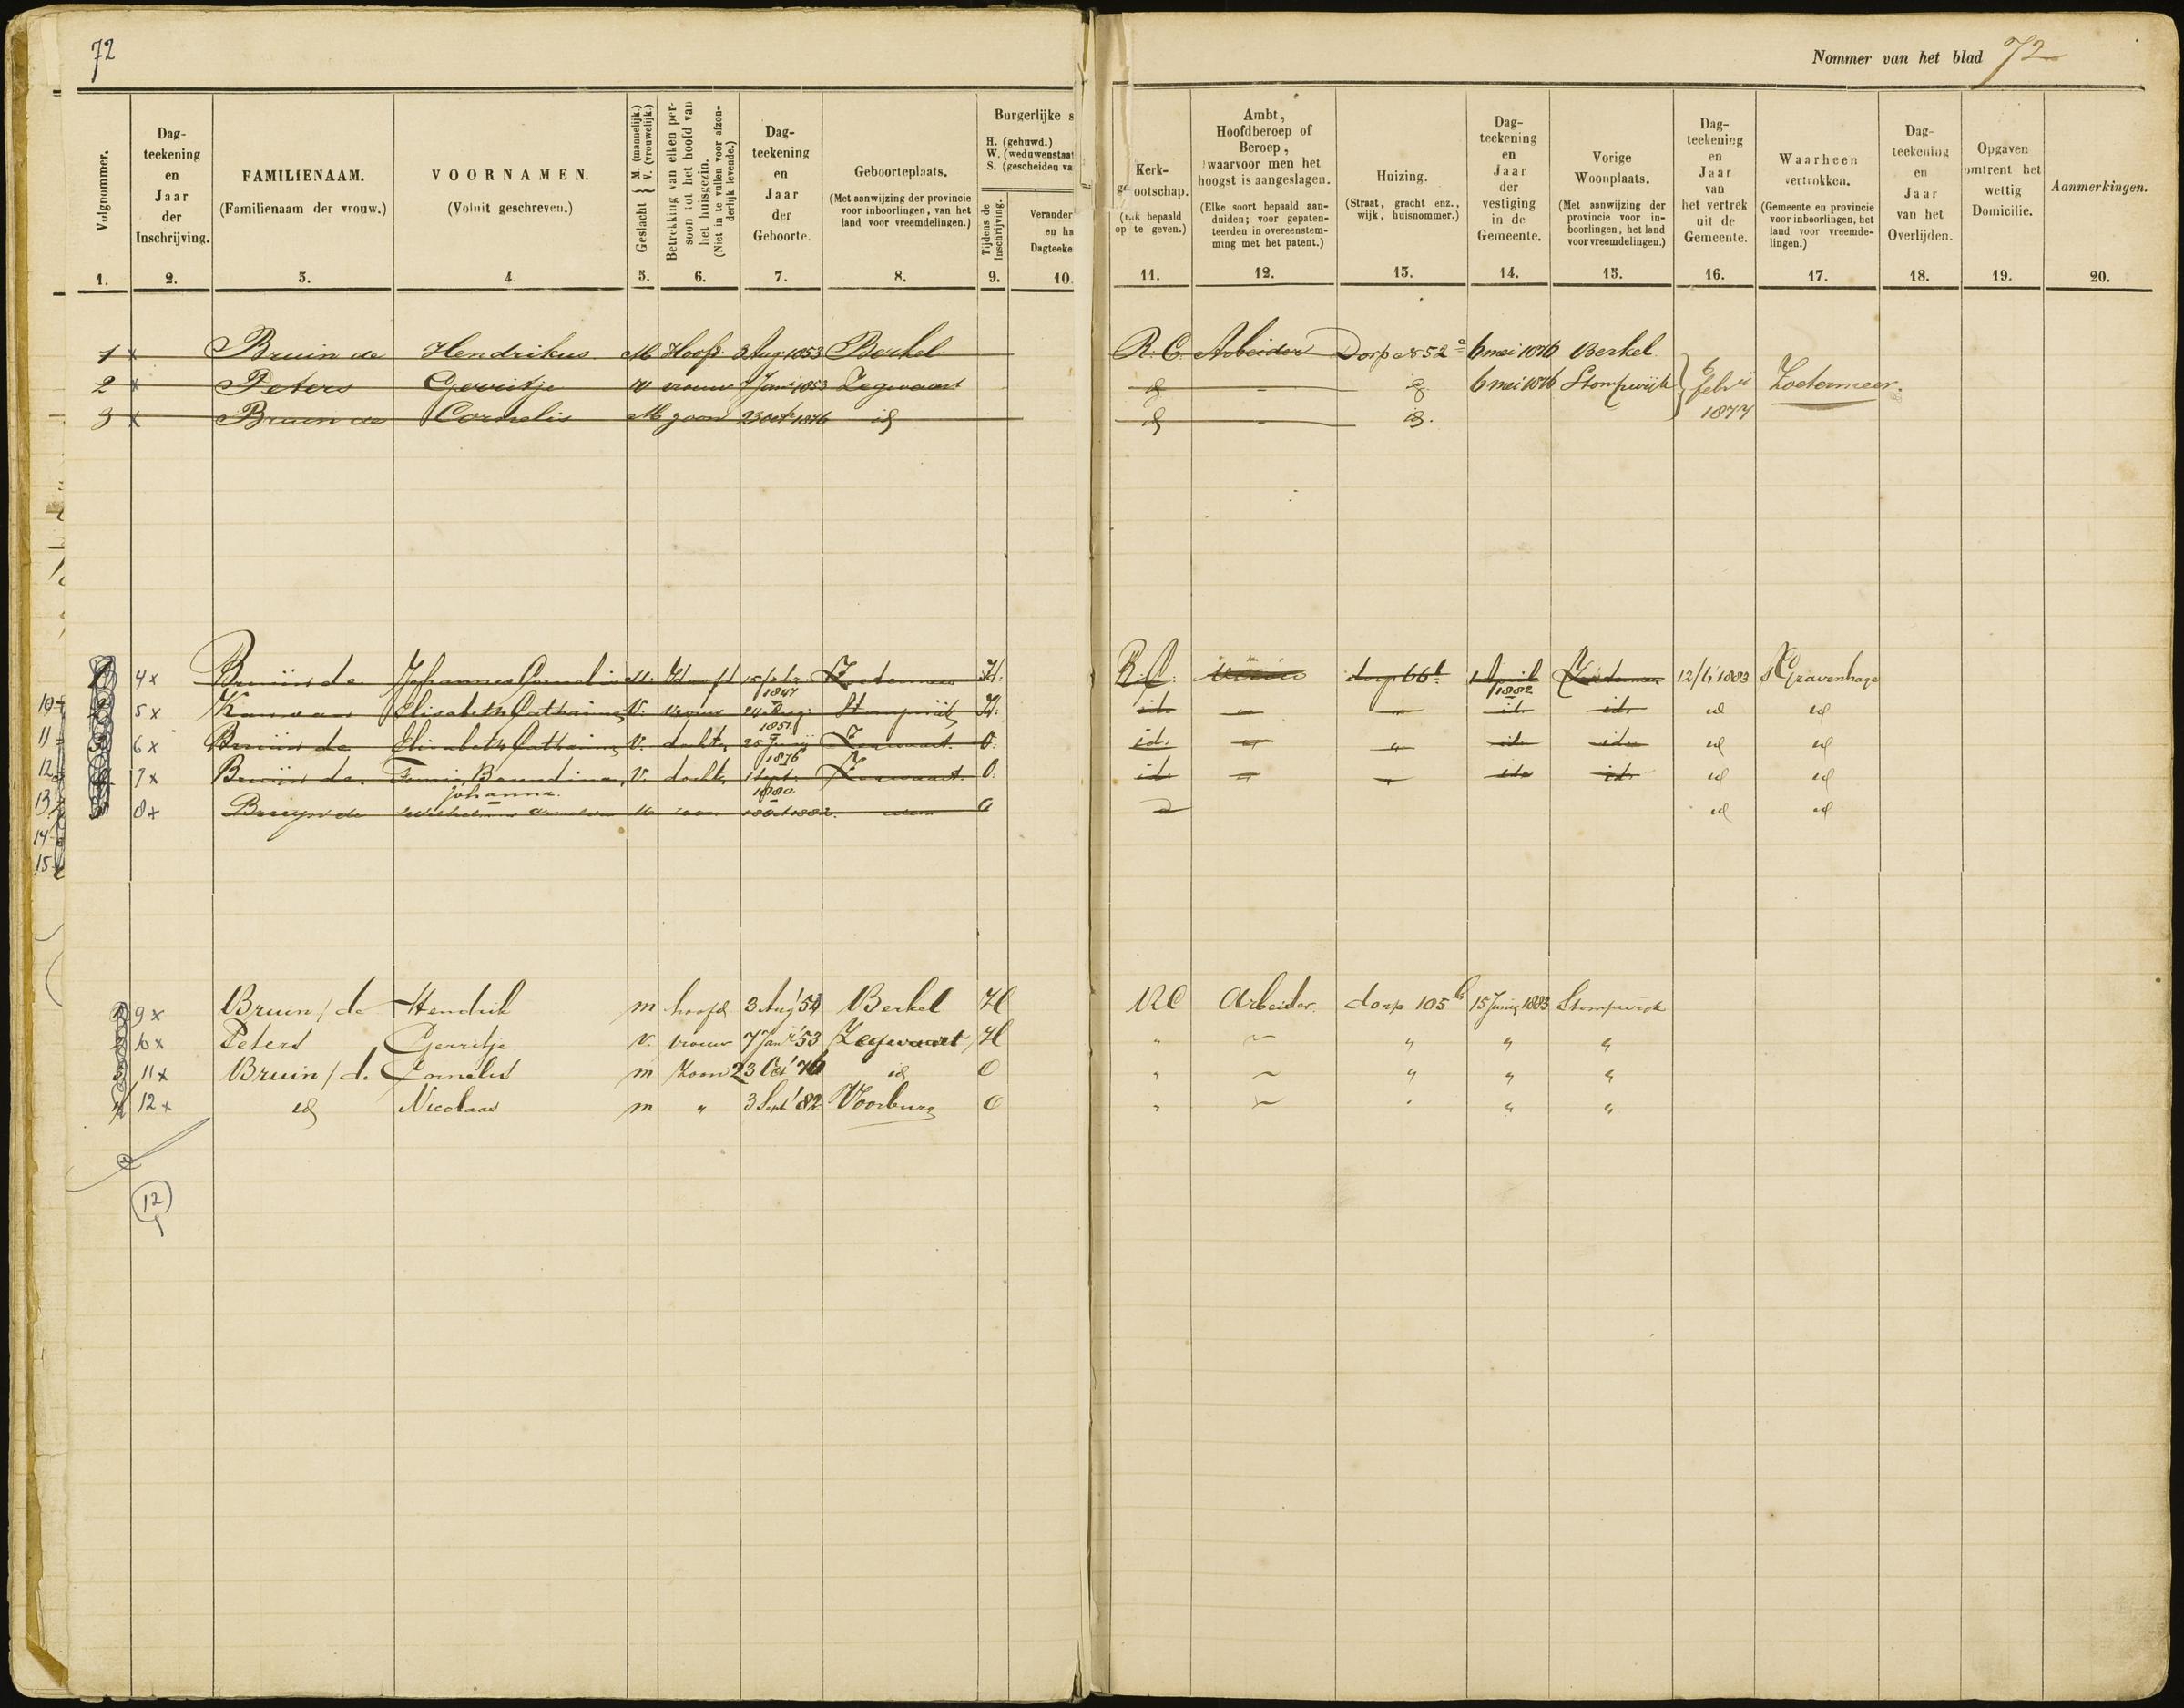 72
Nommer van het blad 72
Volgnommer.
1.
Dag-
teekening
en
Jaar
der
Inschrijving.
2.
FAMILIENAAM.
(Familienaam der vrouw.)
3.
VOORNAMEN.
(Voluit geschreven.)
4.
Geslacht { M. (mannelijk.) V. (vrouwelijk.)
5.
Betrekking van elken per-
soon tot het hoofd van
het huisgezin.
(Niet in te vullen voor afzon-
derlijk levende.)
6.
Dag-
teekening
en
Jaar
der
Geboorte.
7.
Geboorteplaats.
(Met aanwijzing der provincie
voor inboorlingen, van het
land voor vreemdelingen.)
8.
Burgerlijke s
H. (gehuwd.)
W. (weduwenstaat
S. (gescheiden va
Tijdens de
inschrijving.
9.
Verander
en ha
Dagteeke
10.
Kerk-
genootschap.
(Elk bepaald
op te geven.)
11.
Ambt,
Hoofdberoep of
Beroep,
waarvoor men het
hoogst is aangeslagen.
(Elke soort bepaald aan-
duiden; voor gepaten-
teerden in overeenstem-
ming met het patent.)
12.
Huizing.
(Straat, gracht enz.,
wijk, huisnommer.)
13.
Dag-
teekening
en
Jaar
der
vestiging
in de
Gemeente.
14.
Vorige
Woonplaats.
(Met aanwijzing der
provincie voor in-
boorlingen, het land
voor vreemdelingen.)
15.
Dag-
teekening
en
Jaar
van
het vertrek
uit de
Gemeente.
16.
Waarheen
vertrokken.
(Gemeente en provincie
voor inboorlingen, het
land voor vreemde-
lingen.)
17.
Dag-
teekening
en
Jaar
van het
Overlijden.
18.
Opgaven
omtrent het
wettig
Domicilie.
19.
Aanmerkingen.
20.
1 x Bruin de Hendrikus M Hoofd 3 Aug 1853 Berkel R.C. Arbeider Dorp N 52a 6 mei 1876 Berkel
2 x Peters Gerritje V vrouw 7 Jan 1853 Zegwaart id - id 6 mei 1876 Stompwijk 6 febr 1877 Zoetermeer.
3 x Bruin de Cornelis M zoon 23 oct 1876 id id - id.
4 x Bruiin de Johannes Cornelis M. Hoofd 15 1847 Zoetermeer H. R.C. dorp 66b 1 April 1882 Zoetermeer 12/6 1883 s'Gravenhage
10 5 x van Elisabeth Catharina V. vrouw 24 Aug 1851 Stompwijk H. id. " " id. id. id id
11 6 x Bruiin de Elisabeth Catharina V. docht. 25 Junij 1876 Zegwaart. O. id. " " id. id. id id
12 7 x Bruiin de. Boudina, Johanna. V. docht. 1 Sept. 1880. Zegwaart. O. id. " " id. id. id id
13 8 x Bruyn de M zoon 1882 idem O id id
14
15
9 x Bruin / de Hendrik m hoofd 3 Aug '54 Berkel H RC Arbeider. dorp 105b 15 Junij 1883 Stompwijk
10 x Peters Gerritje v. vrouw 7 Jan '53 Zegwaart H " ~ " " "
11 x Bruin / de Cornelis m zoon 23 Oct '76 id O " ~ " " "
12 x id Nicolaas m " 3 Sept '82 Voorburg O " ~ " " "
12